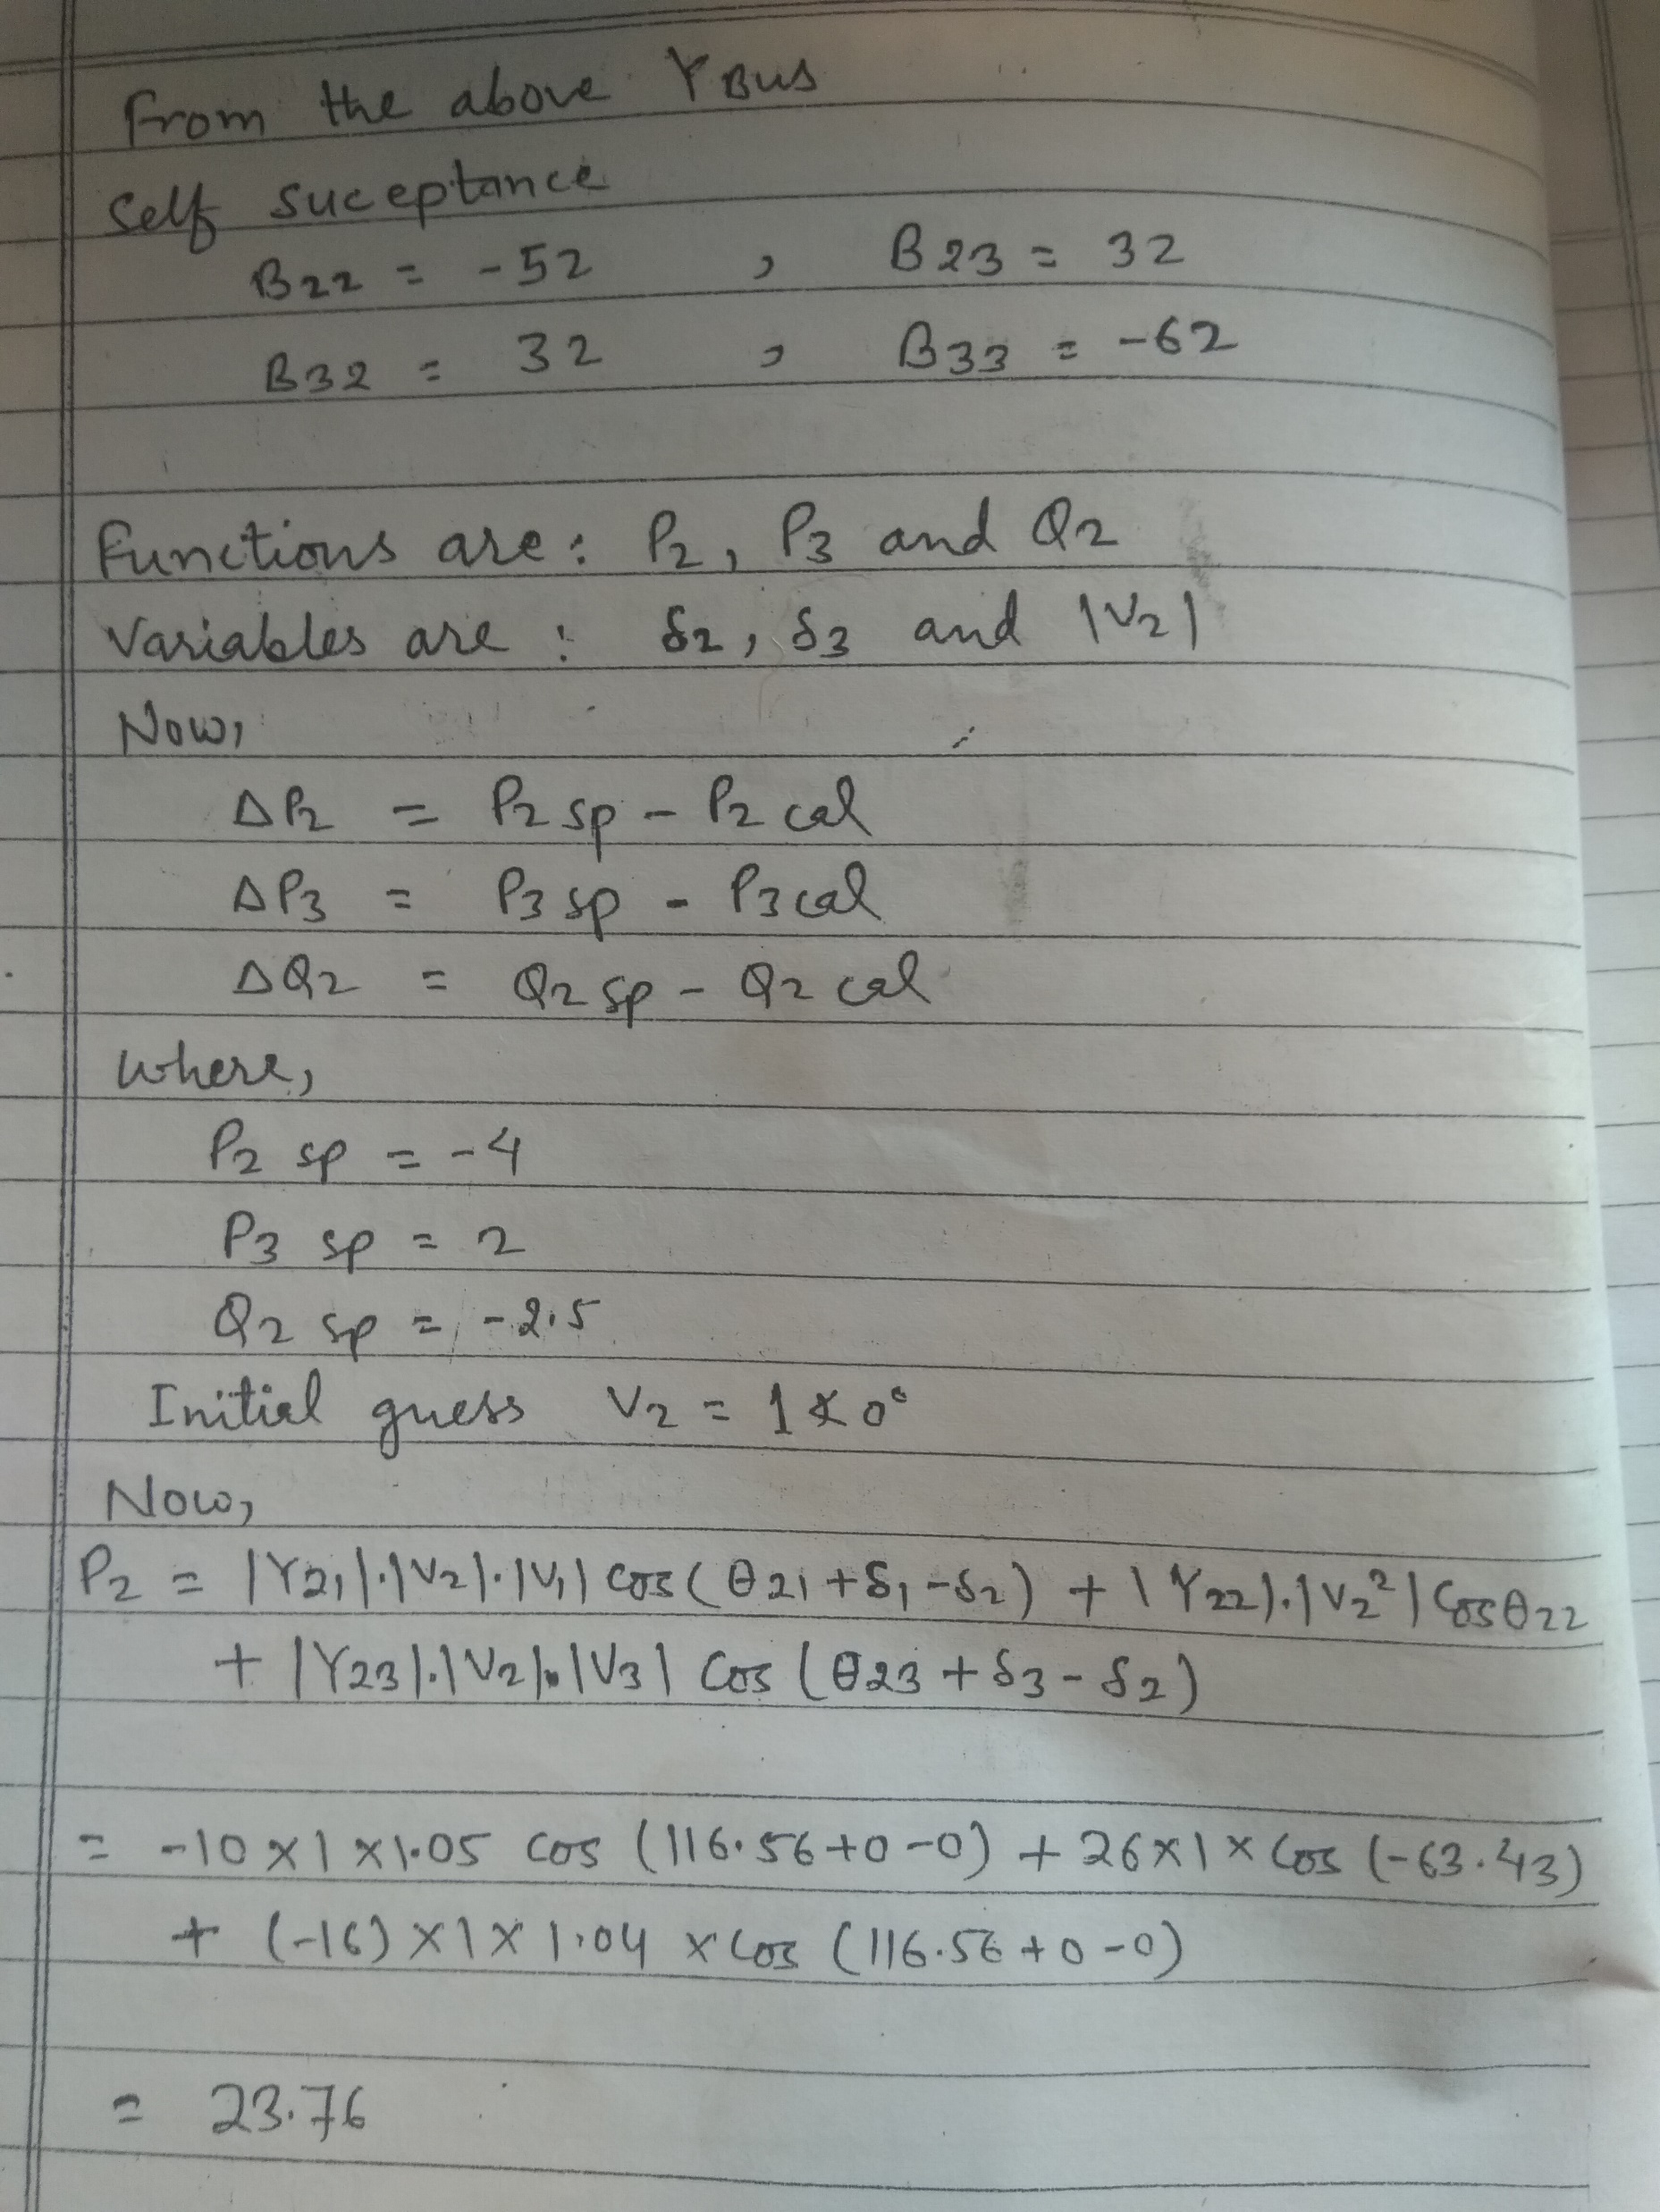 From the above YBUS
Self suceptance
B22 = -52 , B23 = 32
B32 = 32 , B33 = -62
Functions are : P2, P3 and Q2
Variables are : δ2, δ3 and |V2|
Now,
ΔP2 = P2 sp - P2 cal
ΔP3 = P3 sp - P3 cal
ΔQ2 = Q2 sp - Q2 cal
where,
P2 sp = -4
P3 sp = 2
Q2 sp = -2.5
Initial guess V2 = 1∠0°
Now,
P2 = |Y21|.|V2|.|V1| cos(θ21+δ1-δ2) + |Y22|.|V2²| Cosθ22
+ |Y23|.|V2|.|V3| Cos (θ23+δ3-δ2)
= -10×1×1.05 cos (116.56+0-0) + 26×1×Cos (-63.43)
+ (-16)×1×1.04 ×Cos (116.56+0-0)
= 23.76